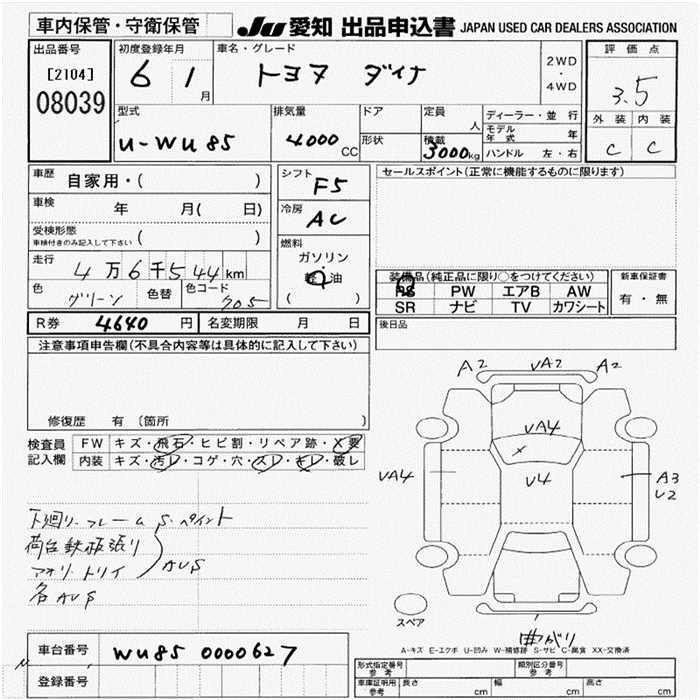 車内保管・守衛保管 JU 愛知 出品申込書 JAPAN USED CAR DEALERS ASSOCIATION
出品番号 初度登録年月 車名・グレード 評価点
[2104] 6 1月 トヨタ ダイナ 2WD・4WD 3.5
08039
型式 排気量 ドア 定員 人 ディーラー・並行 外装 内装
U-WU85 4000 CC 形状 積載 3000kg モデル年式 年 C C
ハンドル 左・右
車歴 自家用・( ) シフト F5 セールスポイント(正常に機能するものに限ります)
車検 年 月( 日) 冷房 AC
受検形態 ( )
車検付きのみ記入して下さい
燃料 ガソリン
軽油
( )
走行 4万6千544km
色 グリーン 色替 色コード 705
装備品(純正品に限り○をつけてください) 新車保証書
PS PW エアB AW 有・無
SR ナビ TV カワシート
R券 4640 円 名変期限 月 日 後日品
注意事項申告欄(不具合内容等は具体的に記入して下さい)
修復歴 有 (箇所 )
検査員 FW キズ・飛石・ヒビ割・リペア跡・X要
記入欄 内装 キズ・汚レ・コゲ・穴・スレ・キレ・破レ
A2 UA2 A2
UA4
UA4 U4 A3
U2
下廻リ.フレーム S.ペイント
荷台鉄板張り
アオリ.トリイ AUS
各AUS
スペア
曲がり
A-キズ E-エクボ U-凹み W-補修跡 S-サビ C-腐食 XX-交換済
車台番号 WU85 0000627
登録番号
型式指定番号 参考 類別区分番号 参考
車庫証明用 参考 長さ cm 幅 cm 高さ cm